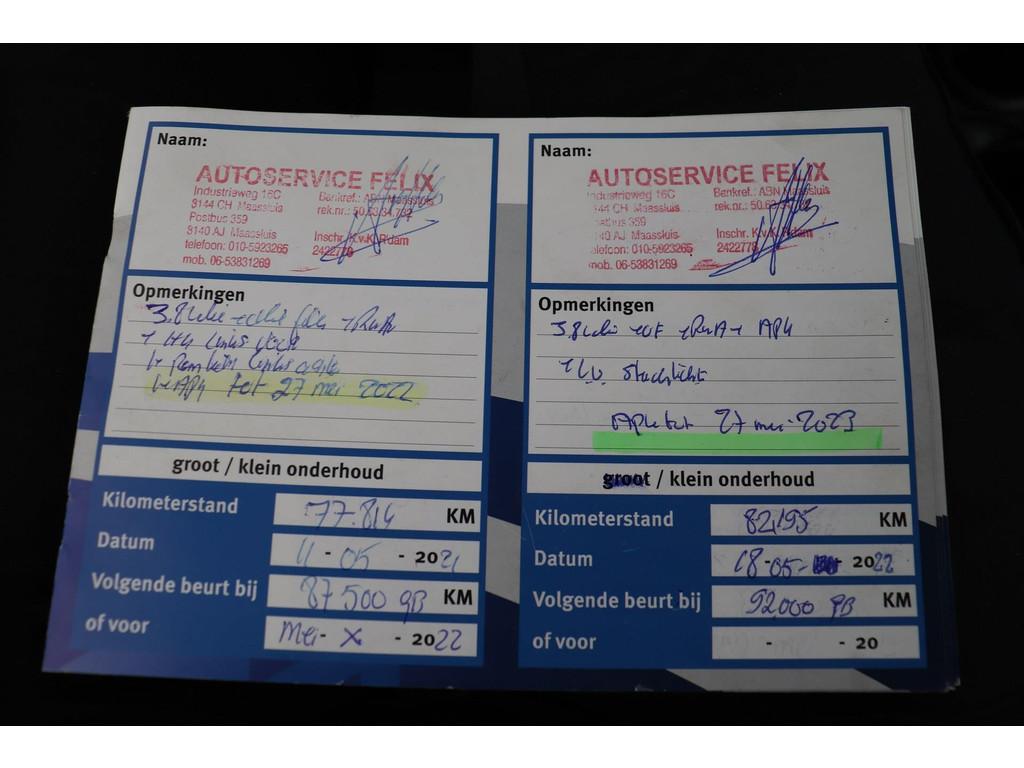 Naam:
AUTOSERVICE FELIX
Industrieweg 16C
3144 CH Maassluis
Postbus 359
3140 AJ Maassluis
telefoon: 010-5923265
mob. 06-53831269
Bankref.: ABN Maassluis
rek.nr.: 50.63.34.732
Inschr. K.v.K. R'dam
2422778
Opmerkingen
links
links
+ APK tot 27 mei 2022
groot / klein onderhoud
Kilometerstand 77.814 KM
Datum 11 - 05 - 2021
Volgende beurt bij 87500 GB KM
of voor mei - X - 2022
Naam:
AUTOSERVICE FELIX
Industrieweg 16C
3144 CH Maassluis
Postbus 359
3140 AJ Maassluis
telefoon: 010-5923265
mob. 06-53831269
Bankref.: ABN Maassluis
rek.nr.: 50.63
Inschr. K.v.K. R'dam
2422778
Opmerkingen
+ APK
+ LV stadslicht
APK tot 27 mei - 2023
groot / klein onderhoud
Kilometerstand 82195 KM
Datum 18 - 05 - 2022
Volgende beurt bij 92.000 GB KM
of voor - - 20